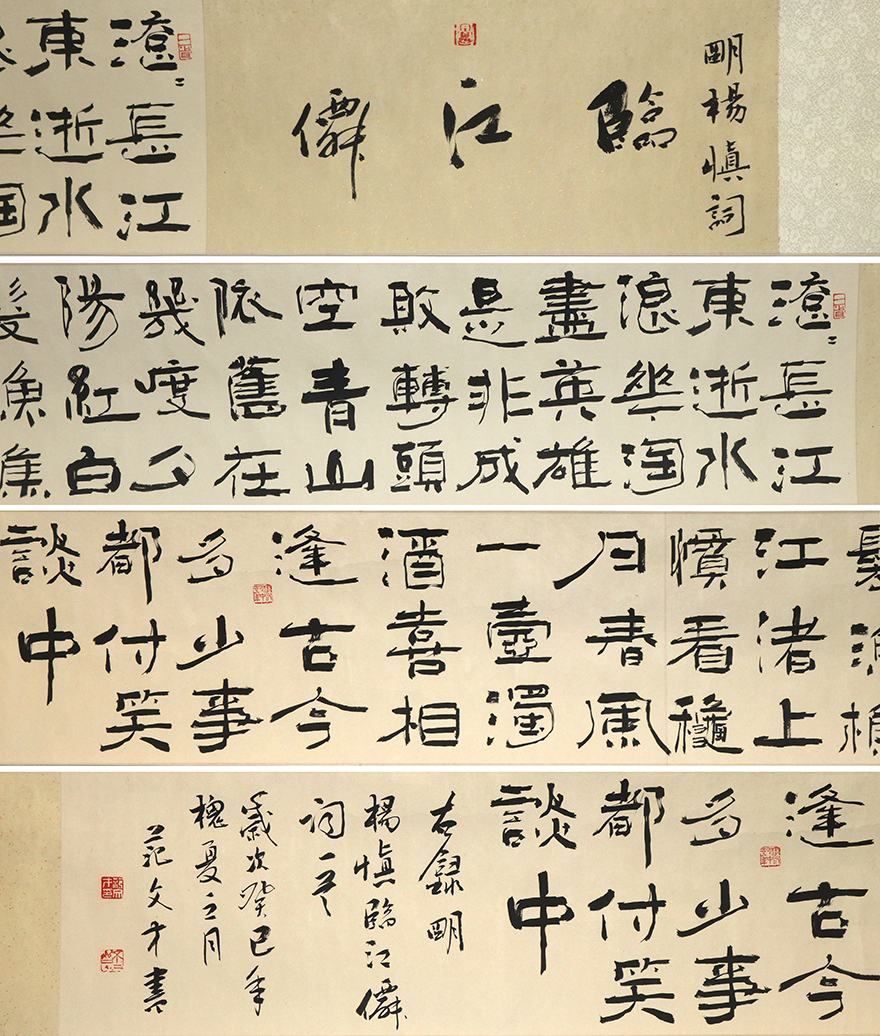 朙楊慎詞
臨江僊
滾〻長江
東逝水
浪花淘
滾〻長江
東逝水
浪花淘
盡英雄
是非成
敗轉頭
空青山
依舊在
幾度夕
陽紅白
髮漁樵
髮漁樵
江渚上
慣看穐
月春風
一壺濁
酒喜相
逢古今
多少事
都付笑
談中
逢古今
多少事
都付笑
談中
右錄朙
楊慎臨江僊
詞一首
歲次癸巳年
槐夏之月
范文才書